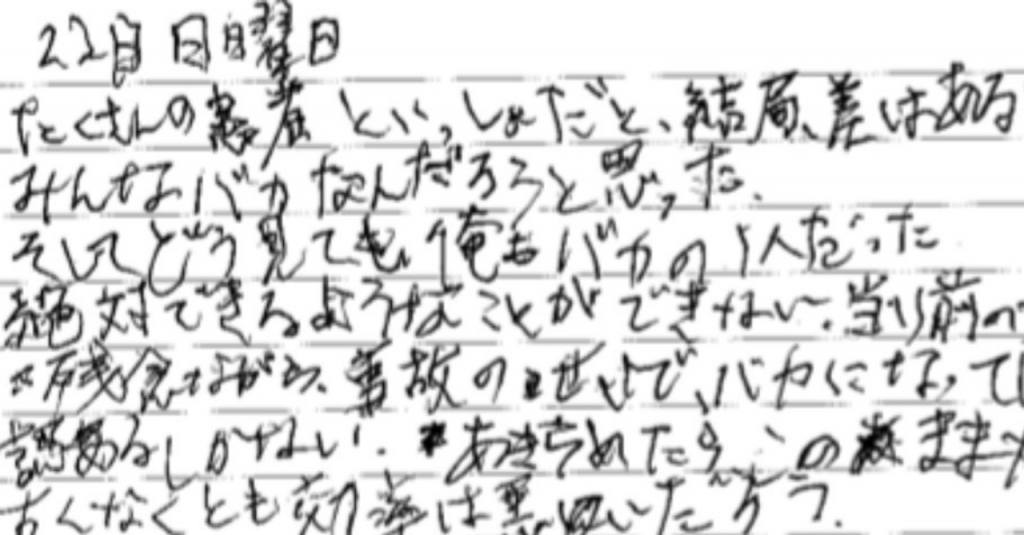 22日 日曜日
たくさんの患者といっしょだと、結局、差はある
みんなバカなんだろうと思った.
そしてどう見ても、俺もバカの1人だった
絶対できるようなことができない. 当り前の
残念ながら、事故のせいで、バカになって
認めるしかない. あきらめたら、このまま
少くなくとも効率は悪いだろう.